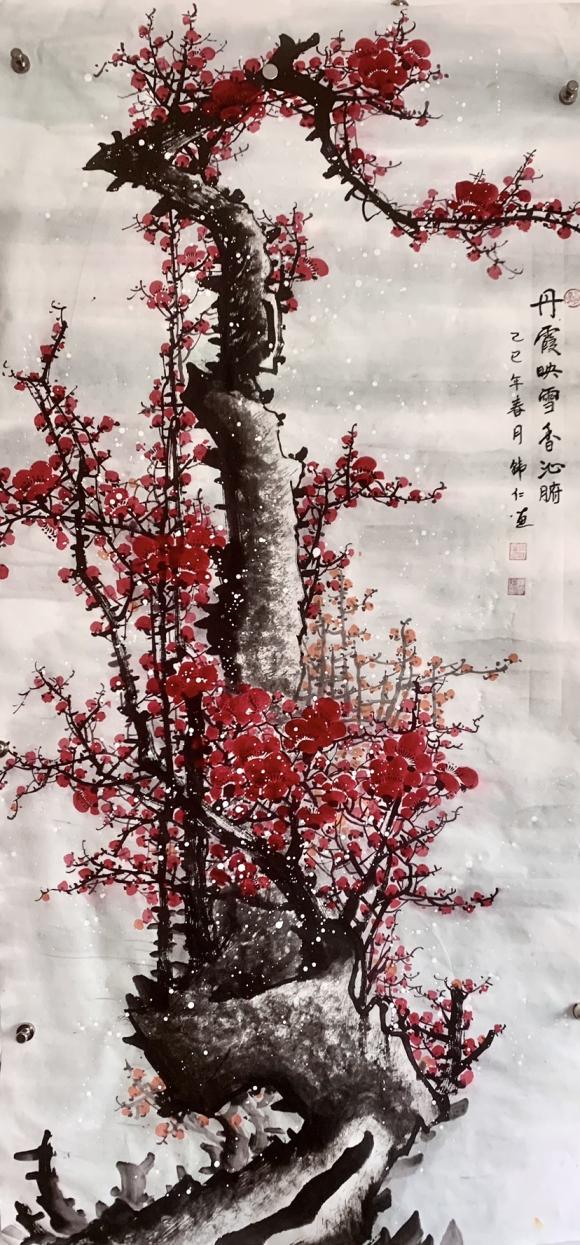 丹霞映雪香沁腑
乙巳年春月锦仁画